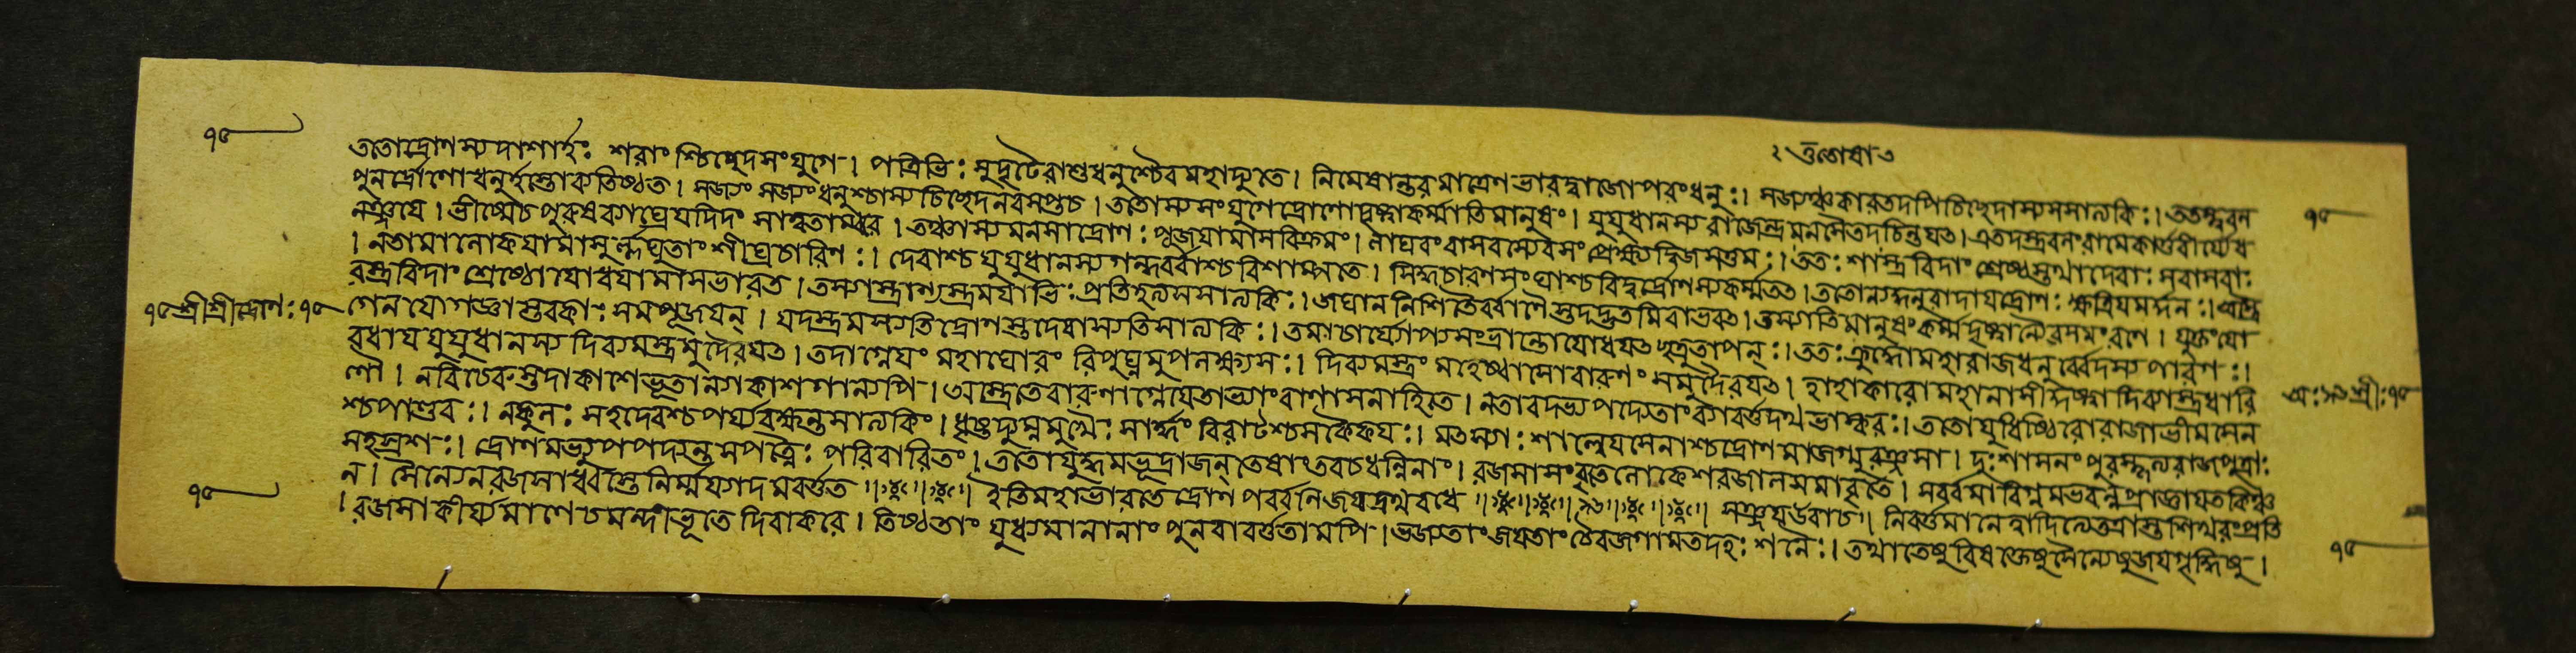 ২ ত্ততোষাত
১৫
ততোদ্রোণস্যদাশার্হঃ শরাংশ্চিচ্ছেদসংযুগে। পত্রিভিঃ সুদৃঢৈরাশুধনুশ্চৈবমহাদ্যুতে। নিমেষান্তরমাত্রেণভারদ্বাজোপরংধনুঃ। সজ্যঞ্চকারতদপিচিচ্ছেদাস্যসসাত্যকিঃ। ততস্ত্বরন
পুনর্দ্রোণোধনুর্হস্তোব্যতিষ্ঠত। সজ্যং সজ্যংধনুশ্চাস্যচিচ্ছেদনবসপ্তচ। ততোস্যসংযুগেদ্রোণোদৃষ্ট্বাকর্ম্মাতিমানুষং। যুযুধানস্যরাজেন্দ্রমনসৈতদচিন্তযৎ। এতদস্ত্রবলংরামেকার্ত্তবীর্য্যেধ
১৫
নঞ্জযে। ভীষ্মেচপুরুষব্যাঘ্রেযদিদং সাত্বতাম্বরে। তঞ্চাস্যমনসাদ্রোণঃ পূজযামাসবিক্রমং। লাঘবংবাসবস্যেবসংপ্রেক্ষ্যদ্বিজসত্তমঃ। ততঃ শাস্ত্রবিদাং শ্রেষ্ঠস্তথাদেবাঃ সবাসবাঃ
। নতামালোকযামাসুর্ল্লঘুতাং শীঘ্রচারিণঃ। দেবাশ্চযুযুধানস্যগন্ধর্ব্বাশ্চবিশাম্পতে। সিদ্ধচারণসংঘাশ্চবিদুর্দ্রোণস্যকর্ম্মতৎ। ততোন্যদ্ধনুরাদাযদ্রোণঃ ক্ষত্রিযমর্দ্দনঃ। অস্ত্রৈ
রস্ত্রবিদাং শ্রেষ্ঠোযোধযামাসভারত। তস্যাস্ত্রাণ্যস্ত্রমাযাভিঃ প্রতিহত্যসসাত্যকিঃ। জঘাননিশিতৈর্ব্বাণৈস্তদদ্ভুতমিবাভবৎ। তস্যাতিমানুষংকর্ম্মদৃষ্ট্বান্যৈরসমংরণে। যুক্তংযো
১৫ শ্রীশ্রীদ্রোণঃ ১৫
গেনযোগজ্ঞাস্তাবকাঃ সমপূজযন্। যদস্ত্রমস্যতিদ্রোণস্তদেবাস্যতিসাত্যকিঃ। তমাচার্য্যোপ্যসংভ্রান্তোযোধযৎশত্রুতাপনঃ। ততঃক্রুদ্ধোমহারাজধনুর্ব্বেদস্য পারগঃ।
বধাযযুযুধানস্যদিব্যমস্ত্রমুদৈরযৎ। তদাগ্নেযং মহাঘোরং রিপুঘ্নমুপলক্ষ্যসঃ। দিব্যমস্ত্রং মহেষ্বাসোবারুণং সমুদৈরযৎ। হাহাকারোমহানাসীদ্দৃষ্ট্বাদিব্যাস্ত্রধারি
শ্রীঃ ১৫
ণৌ। নবিচেরুস্তদাকাশেভূতান্যাকাশগান্যপি। অস্ত্রেতেবারুণাগ্নেযেতাভ্যাংবাণসমাহিতে। নতাবদভ্যপদ্যেতাংব্যাবর্ত্তদথভাস্করঃ। ততোযুধিষ্ঠিরোরাজাভীমসেন
শ্চপাণ্ডবঃ। নকুলঃ সহদেবশ্চপর্য্যরক্ষন্তসাত্যকিং। ধৃষ্টদ্যুম্নমুখৈঃ সার্দ্ধং বিরাটশ্চসকৈকযঃ। মৎস্যাঃ শাল্বেযসেনাশ্চদ্রোণমাজগ্মুরঞ্জসা। দুঃশাসনং পুরস্কৃত্যরাজপুত্রাঃ
সহস্রশঃ। দ্রোণমভ্যুপপদ্যন্তসপত্নৈঃ পরিবারিতং। ততোযুদ্ধমভূদ্রাজন্তেষাংতবচধন্বিনাং। রজসাসংবৃতেলোকেশরজালসমাবৃতে। সর্ব্বমাবিগ্নমভবন্নপ্রাজ্ঞাযতকিঞ্চ
১৫
ন। সৈন্যেনরজসাধ্বস্তেনির্ম্মর্যাদমবর্ত্তত॥ ইতিমহাভারতেদ্রোণপর্ব্বনিজযদ্রথবধে॥ সঞ্জযউবাচ। নিবর্ত্তমানেত্বাদিত্যেতত্রাস্তশিখরংপ্রতি
। রজসাকীর্য্যমাণেচমন্দীভূতে দিবাকরে। তিষ্ঠতাং যুধ্যমানানাং পুনরাবর্ত্ততামপি। ভজ্যতাংজযতাংচৈবজগামতদহঃ শনৈঃ। তথাতেষুবিষক্তেষুসৈন্যেষুজযগৃদ্ধিষু।
১৫